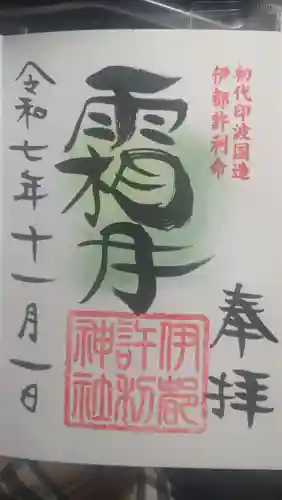 初代印波国造
伊都許利命
奉拝
霜月
伊都許利神社
令和七年十一月一日